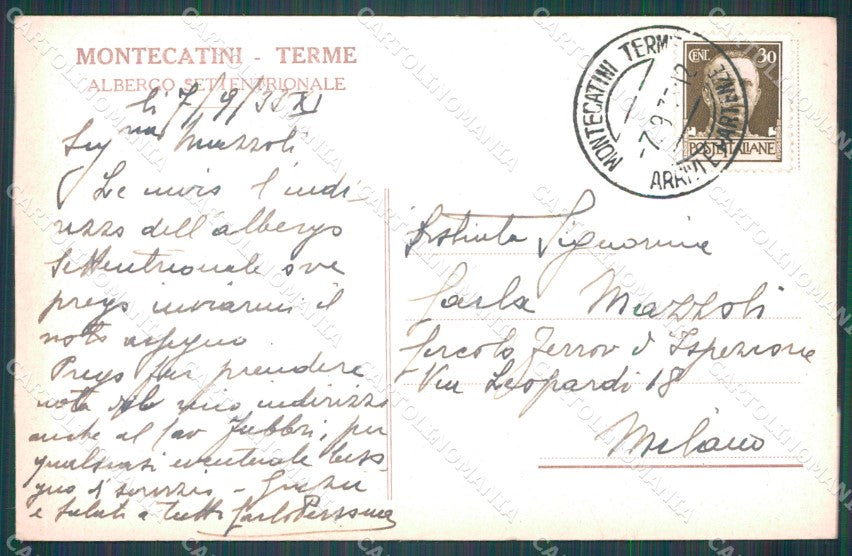 MONTECATINI - TERME
ALBERGO SETTENTRIONALE
li 7/9/35 XI
Sig.na Mazzoli
Le invio l'indi-
rizzo dell'albergo
Settentrionale ove
prego inviarmi il
noto assegno.
Prego far prendere
nota del mio indirizzo
anche al Fabbri, per
qualsiasi eventuale biso-
gno di servizio - Grazie
e saluti a tutti Carlo
MONTECATINI TERME
-7.9.3 12
ARRIVI E PARTENZE
CENT. 30
POSTE ITALIANE
Distinta Signorina
Carla Mazzoli
Circolo Ferrov. d'Ispezione
Via Leopardi 18
Milano
CARTOLINOMANIA